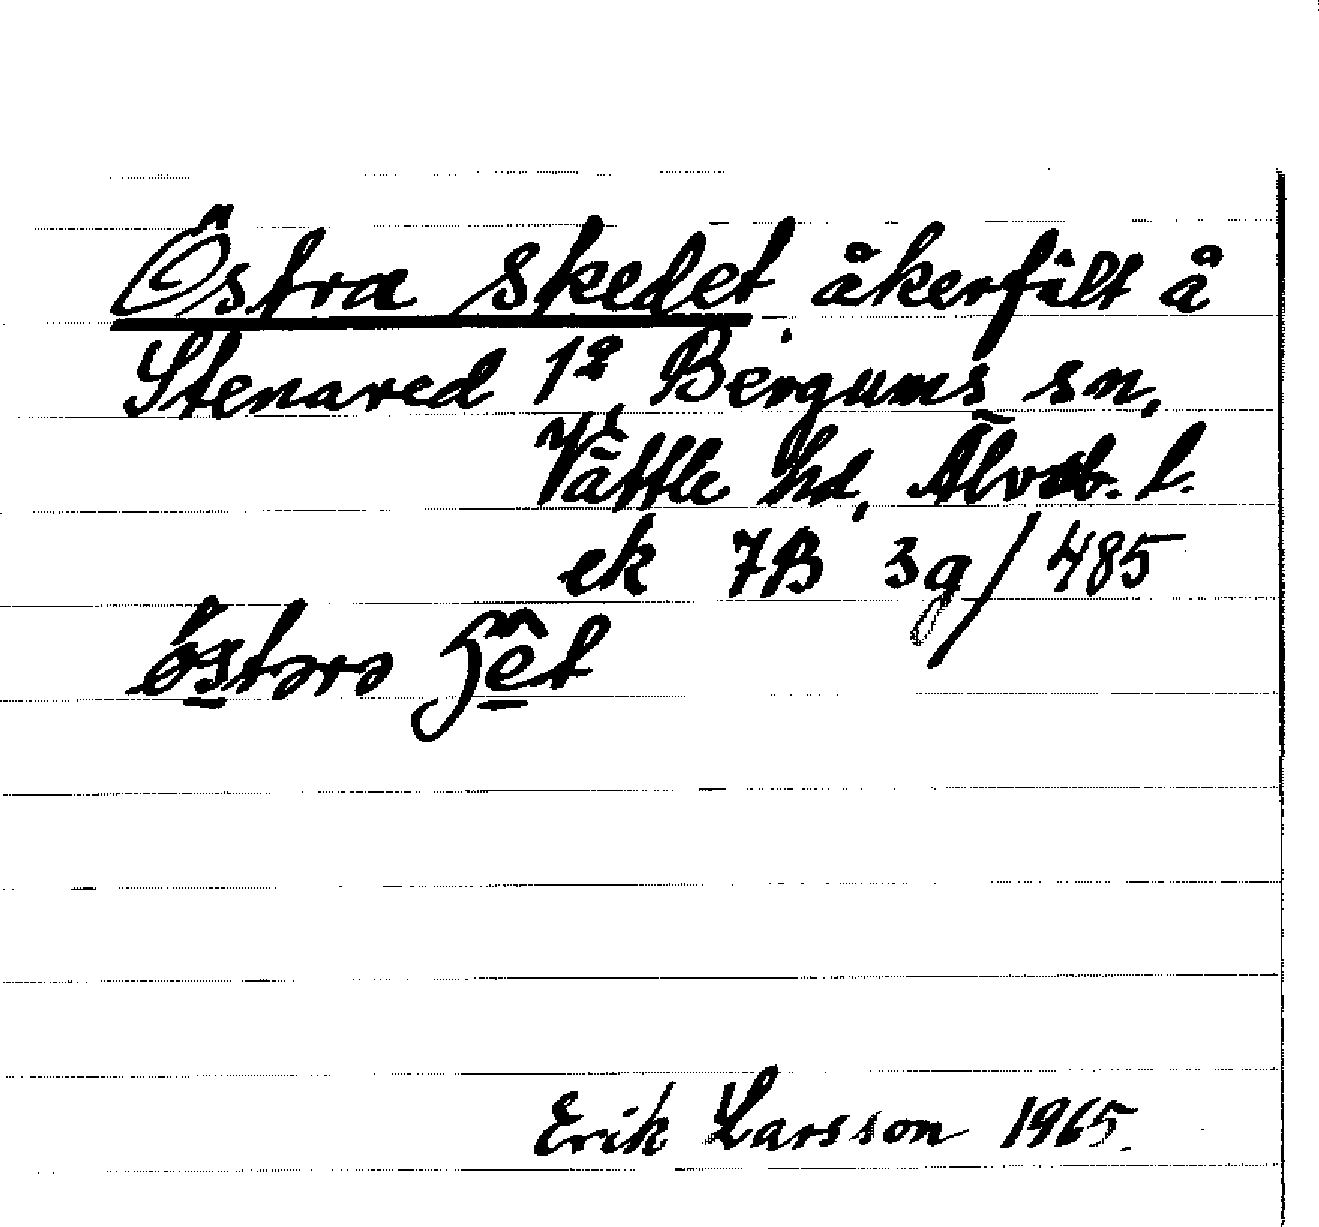 Östra Skedet åkerfält å
Stenared 1² Bergums sn,
Vättle hd, Älvsb. l.
ek 7B 3g/485
Erik Larsson 1965.